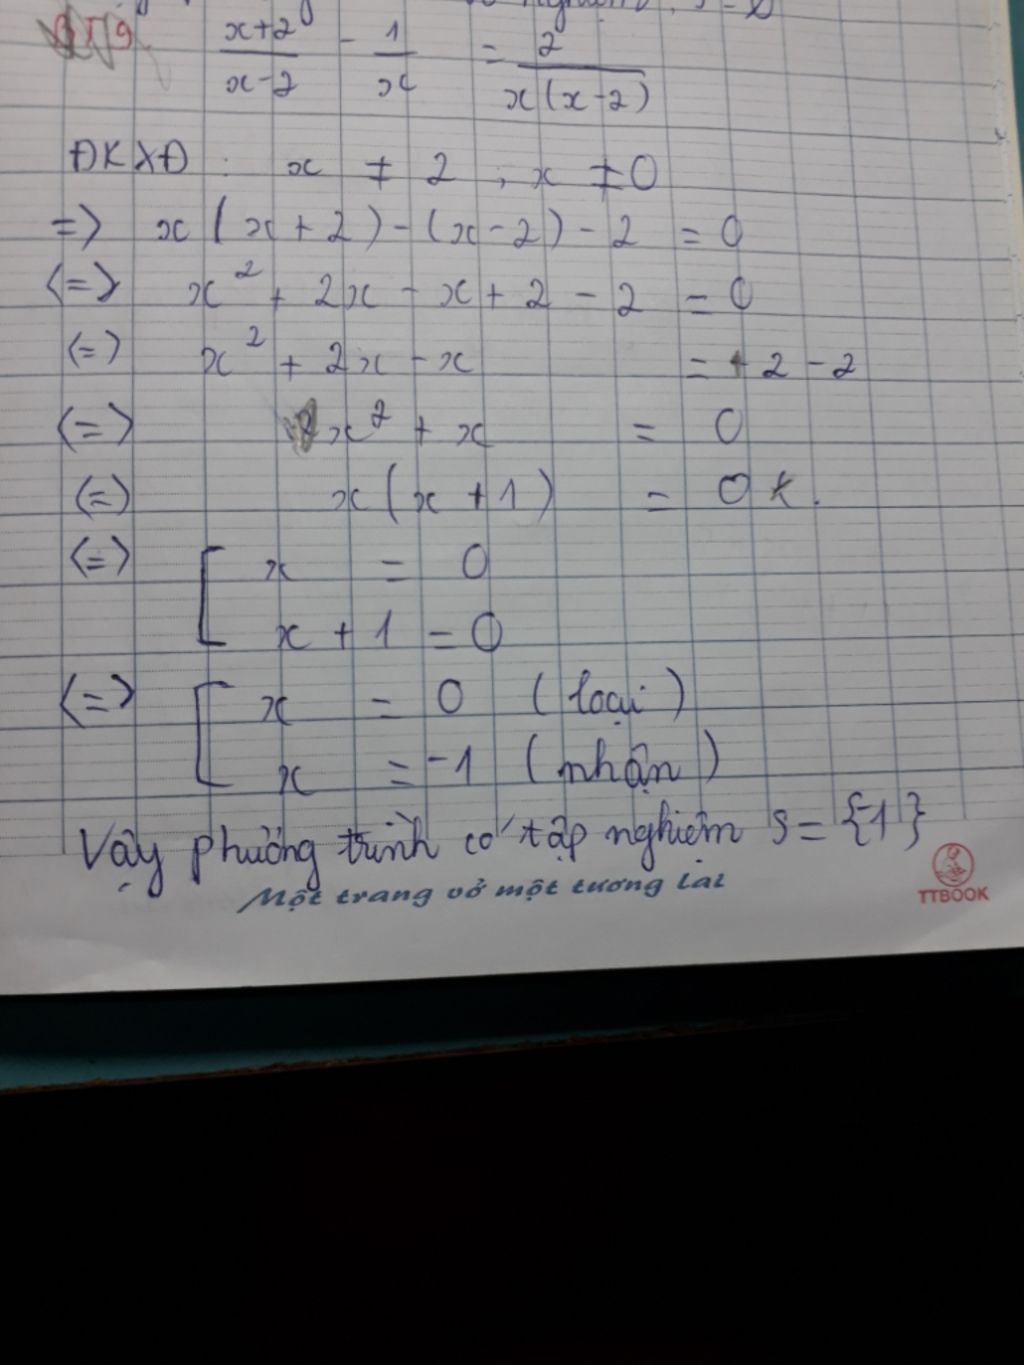 nghiệm
x+2 / x-2 - 1 / x = 2 / x(x-2)
ĐKXĐ : x ≠ 2 ; x ≠ 0
=> x(x+2)-(x-2)-2 = 0
<=> x² + 2x - x + 2 - 2 = 0
<=> x² + 2x - x = + 2 - 2
<=> x² + x = 0
<=> x(x+1) = 0
<=> [ x = 0
x + 1 = 0
<=> [ x = 0 (loại)
x = -1 (nhận)
Vậy phương trình có tập nghiệm S = {-1}
Một trang vở một tương lai
TTBOOK